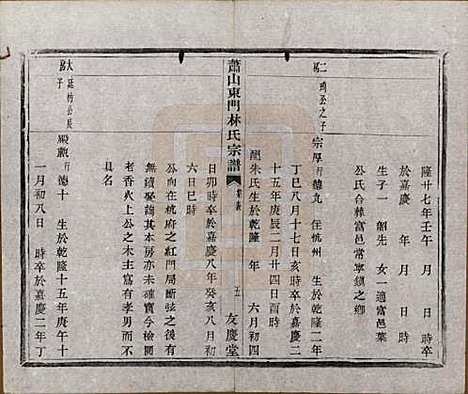 隆廿七年壬午 月 日 時卒
於嘉慶 年 月 日 時
生子一 韶先 女一適富邑葉
公氏合葬富邑常寧鎮之鄉
二房 之子 宗厚 行德九 住杭州 生於乾隆二年
丁巳八月十七日亥時卒於嘉慶二
十五年庚辰二月廿四日酉時
配朱氏生於乾隆 年 六月初四
日卯時卒於嘉慶八年癸亥八月初
六日巳時
蕭山東門林氏宗譜
五
友慶堂
公向在杭府之紅門局斷弦之後有
無續娶詢其本房亦未確實今檢關
老香火上公之木主富有孝男而未
具名
大房 廷枋公長子 殿獻 行德十 生於乾隆十五年庚午十
一月初八日 時卒於嘉慶二年丁